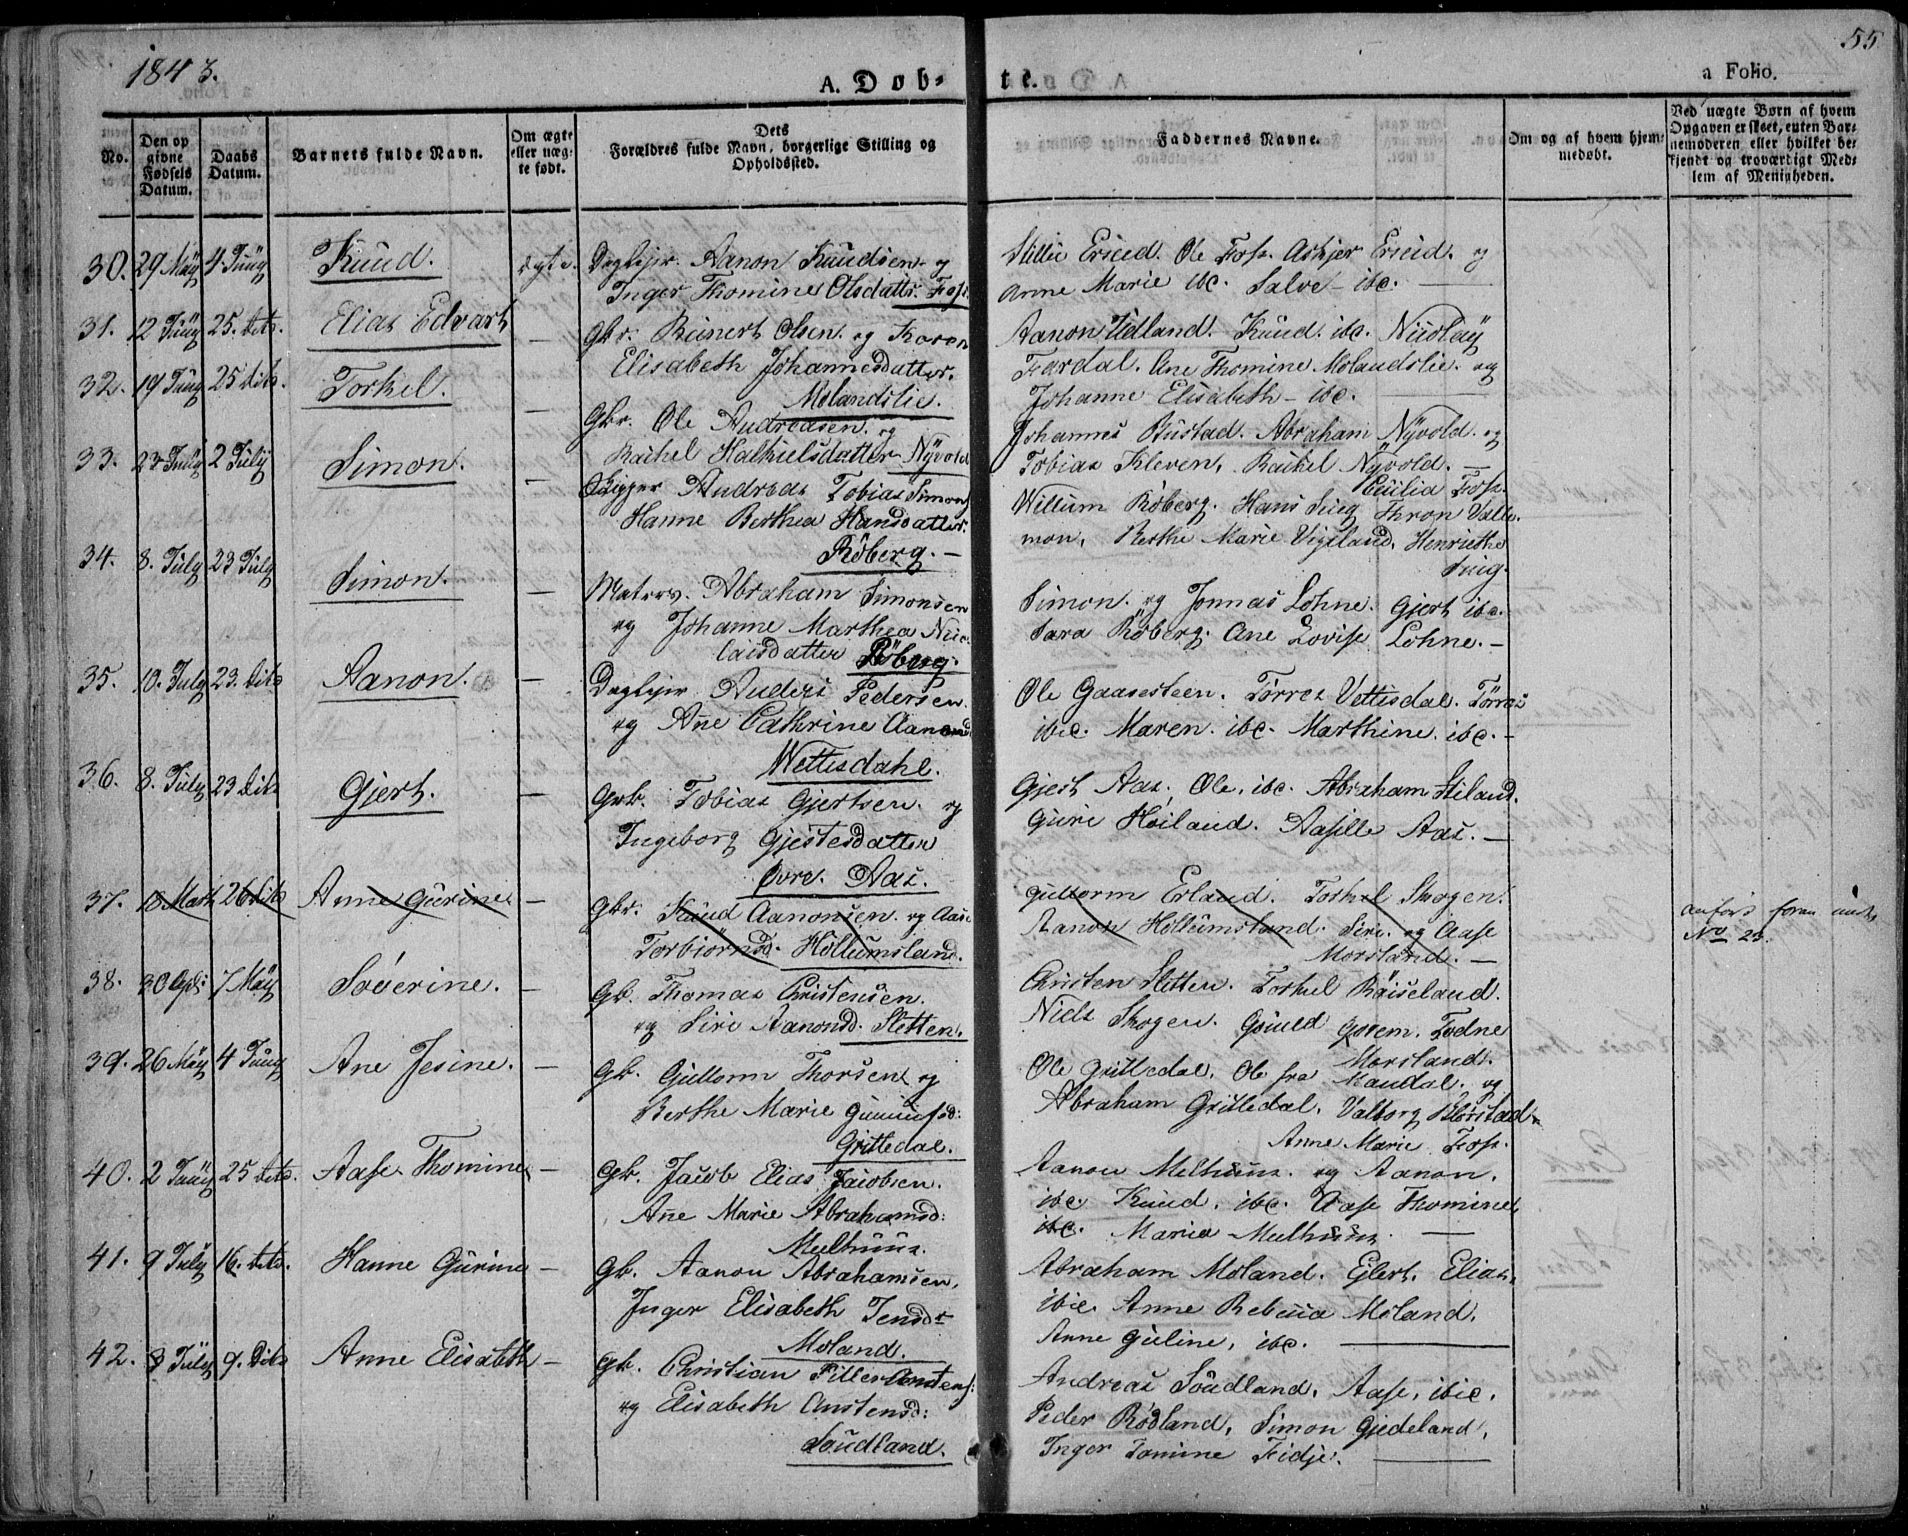 1843.
55
A. Døb-
te.
a Folio.
No.
Den op
givne
Fødsels
Datum.
Daabs
Datum.
Barnets fulde Navn.
Om ægte
eller uæg-
te født.
Dets
Forældres fulde Navn, borgerlige Stilling og
Opholdssted.
Faddernes Navne.
Om og af hvem hjem-
medøbt.
Ved uægte Børn af hvem
Opgaven er skeet, enten Bar-
nemoderen eller hvilket be-
kjendt og troværdigt Med-
lem af Menigheden.
30. 29 Mäy 4 Junÿ Knud. ægte.
Daglejr. Aanon Knudsen og
Inger Thomine Olsdattr. Foss.
Ole Foss. Asbjør
Anne Marie ibc. Salve ibc.
31. 12 Junÿ 25. dito. Elias Edvart —
Gbr. Reinert Olsen og Karen
Elisabeth Johannesdatter.
Molandslie.
Aanon Udland. Knud. ibc. Nicolaÿ
Fardal. Ane Thomine Molandslie. og
Johanne Elisabeth ibc.
32. 19 Junÿ 25 dito. Torkel. —
Gbr. Ole Andreasen og
Rachel Hathielsdatter Nÿvold
Johannes Bustad. Abraham Nÿvold. og
Tobias Kleven, Rachel Nÿvold. —
33. 23 Junÿ 2 Julÿ Simon. —
Andreas Tobias Simons
Hanne Berthea Hansdatter.
Røberg. —
Cecilia Foss.
Willum Röberg. Hans Thron Valle.
mon. Berthe Marie Vigeland, Henriethe
34. 8. July 23 July Simon. —
Matros. Abraham Simonsen
og Johanne Marthea Nic-
laisdatter Röberg.
Simon. og Jonnas Lohne. Gjert ibc.
Sara Röberg. Ane Lovise Lohne. —
35. 10. July 23. dito Aanon. —
Daglejer Anders Pedersen
og Añe Cathrine Aanonsd
Wettisdahl.
Ole Gaasesteen. Tørres Vettisdal. Tørres
ibic. Maren. ibc. Marthine. ibc. —
36. 8. July 23 dito Gjert. —
Gbr. Tobias Gjertsen. og
Ingeborg Gjestesdatter
Øvre. Aas.
Gjert Aas. Ole. ibc. Abraham Stiland.
Guri Høiland. Aasille Aas. —
37. 18 Marts 26 dito Anne Gurine —
Gbr. Knud Aanonsen og Aase
Torbiörnsd. Höllumsland.
Guttorm Erland. Torkel Skogen.
Aanon Höllumsland. Siri. og Aase
Morsland. —
anført foran under
No 23.
38. 30 Apl: 7 Mäy Søverine. —
Gb. Thomas Christensen.
og Siri Aanonsd. Sletten.
Christen Sletten. Torkel Röiseland.
Niels Skogen. Todne
Morsland.
39. 26 Mäy 4 Junÿ Ane Jesine. —
Gb. Guttorm Thorsen og
Berthe Marie
Grittedal.
Ole Grittedal. Ole fra Mandal. og
Abraham Grittedal, Valborg
Anne Marie Foss.
40. 2 Junÿ 25 dito. Aase Thomine —
Gb. Jacob Elias Jacobsen.
Añe Marie Abrahamsd:
Melhuus.
Aanon Melhuus. og Aanon.
ibc. Knud, ibc. Aase Thomine
ibc. Maria Melhuus.
41. 9 July 16. dito. Hanne Gurine —
Gb. Aanon Abrahamsen,
Inger Elisabeth Jensdr
Moland.
Abraham Moland. Ejlert, Elias,
ibic. Anne Rebecca Moland,
Anne Guline, ibc.
42. 3 July 9. dito Anne Elisabeth —
Gb. Christian Pitter Anstens:
og Elisabeth Anstensd:
Söudland.
Andreas Söudland, Aase, ibic.
Peder Rödland, Simon Gjedeland,
Inger Tomine Fidje.